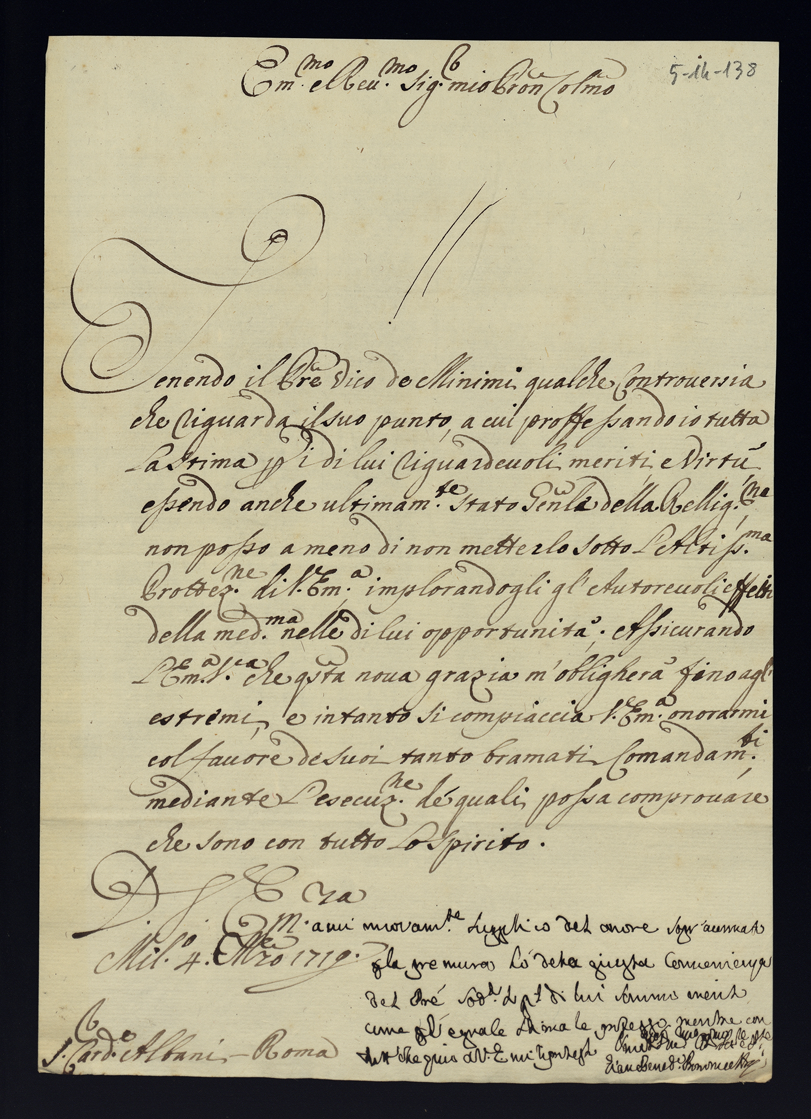 Em.mo e Reu.mo Sig.r mio Pron Colmo
5-14-138
Tenendo il Pre Vico de Minimi qualche Controuersia
che riguarda il suo punto, a cui proffessando io tutta
la stima p i di lui riguardeuoli meriti, e Virtù
essendo anche ultimam.te stato Genle della Rellig.ne
non posso a meno di non metterlo sotto l'Altiss.ma
Prottez.ne di V. Em.a implorandogli gl'Autoreuoli effetti
della med.ma nelle di lui opportunità; Assicurando
l'Em.a V.ra che qsta noua grazia m'obligherà fino agl'
estremi, e intanto si compiaccia V. Em.a onorarmi
col fauore de suoi tanto bramati Comandam.ti
mediante l'esecuz.ne de quali possa comprouare
che sono con tutto lo spirito.
D. V. Em.za
Mil.o 4. Mrzo 1719.
a cui nuouam.te supplico del onore
la premura giusta
del Pré di lui sommo merit
stima mentre con
S. Card.e Albani - Roma